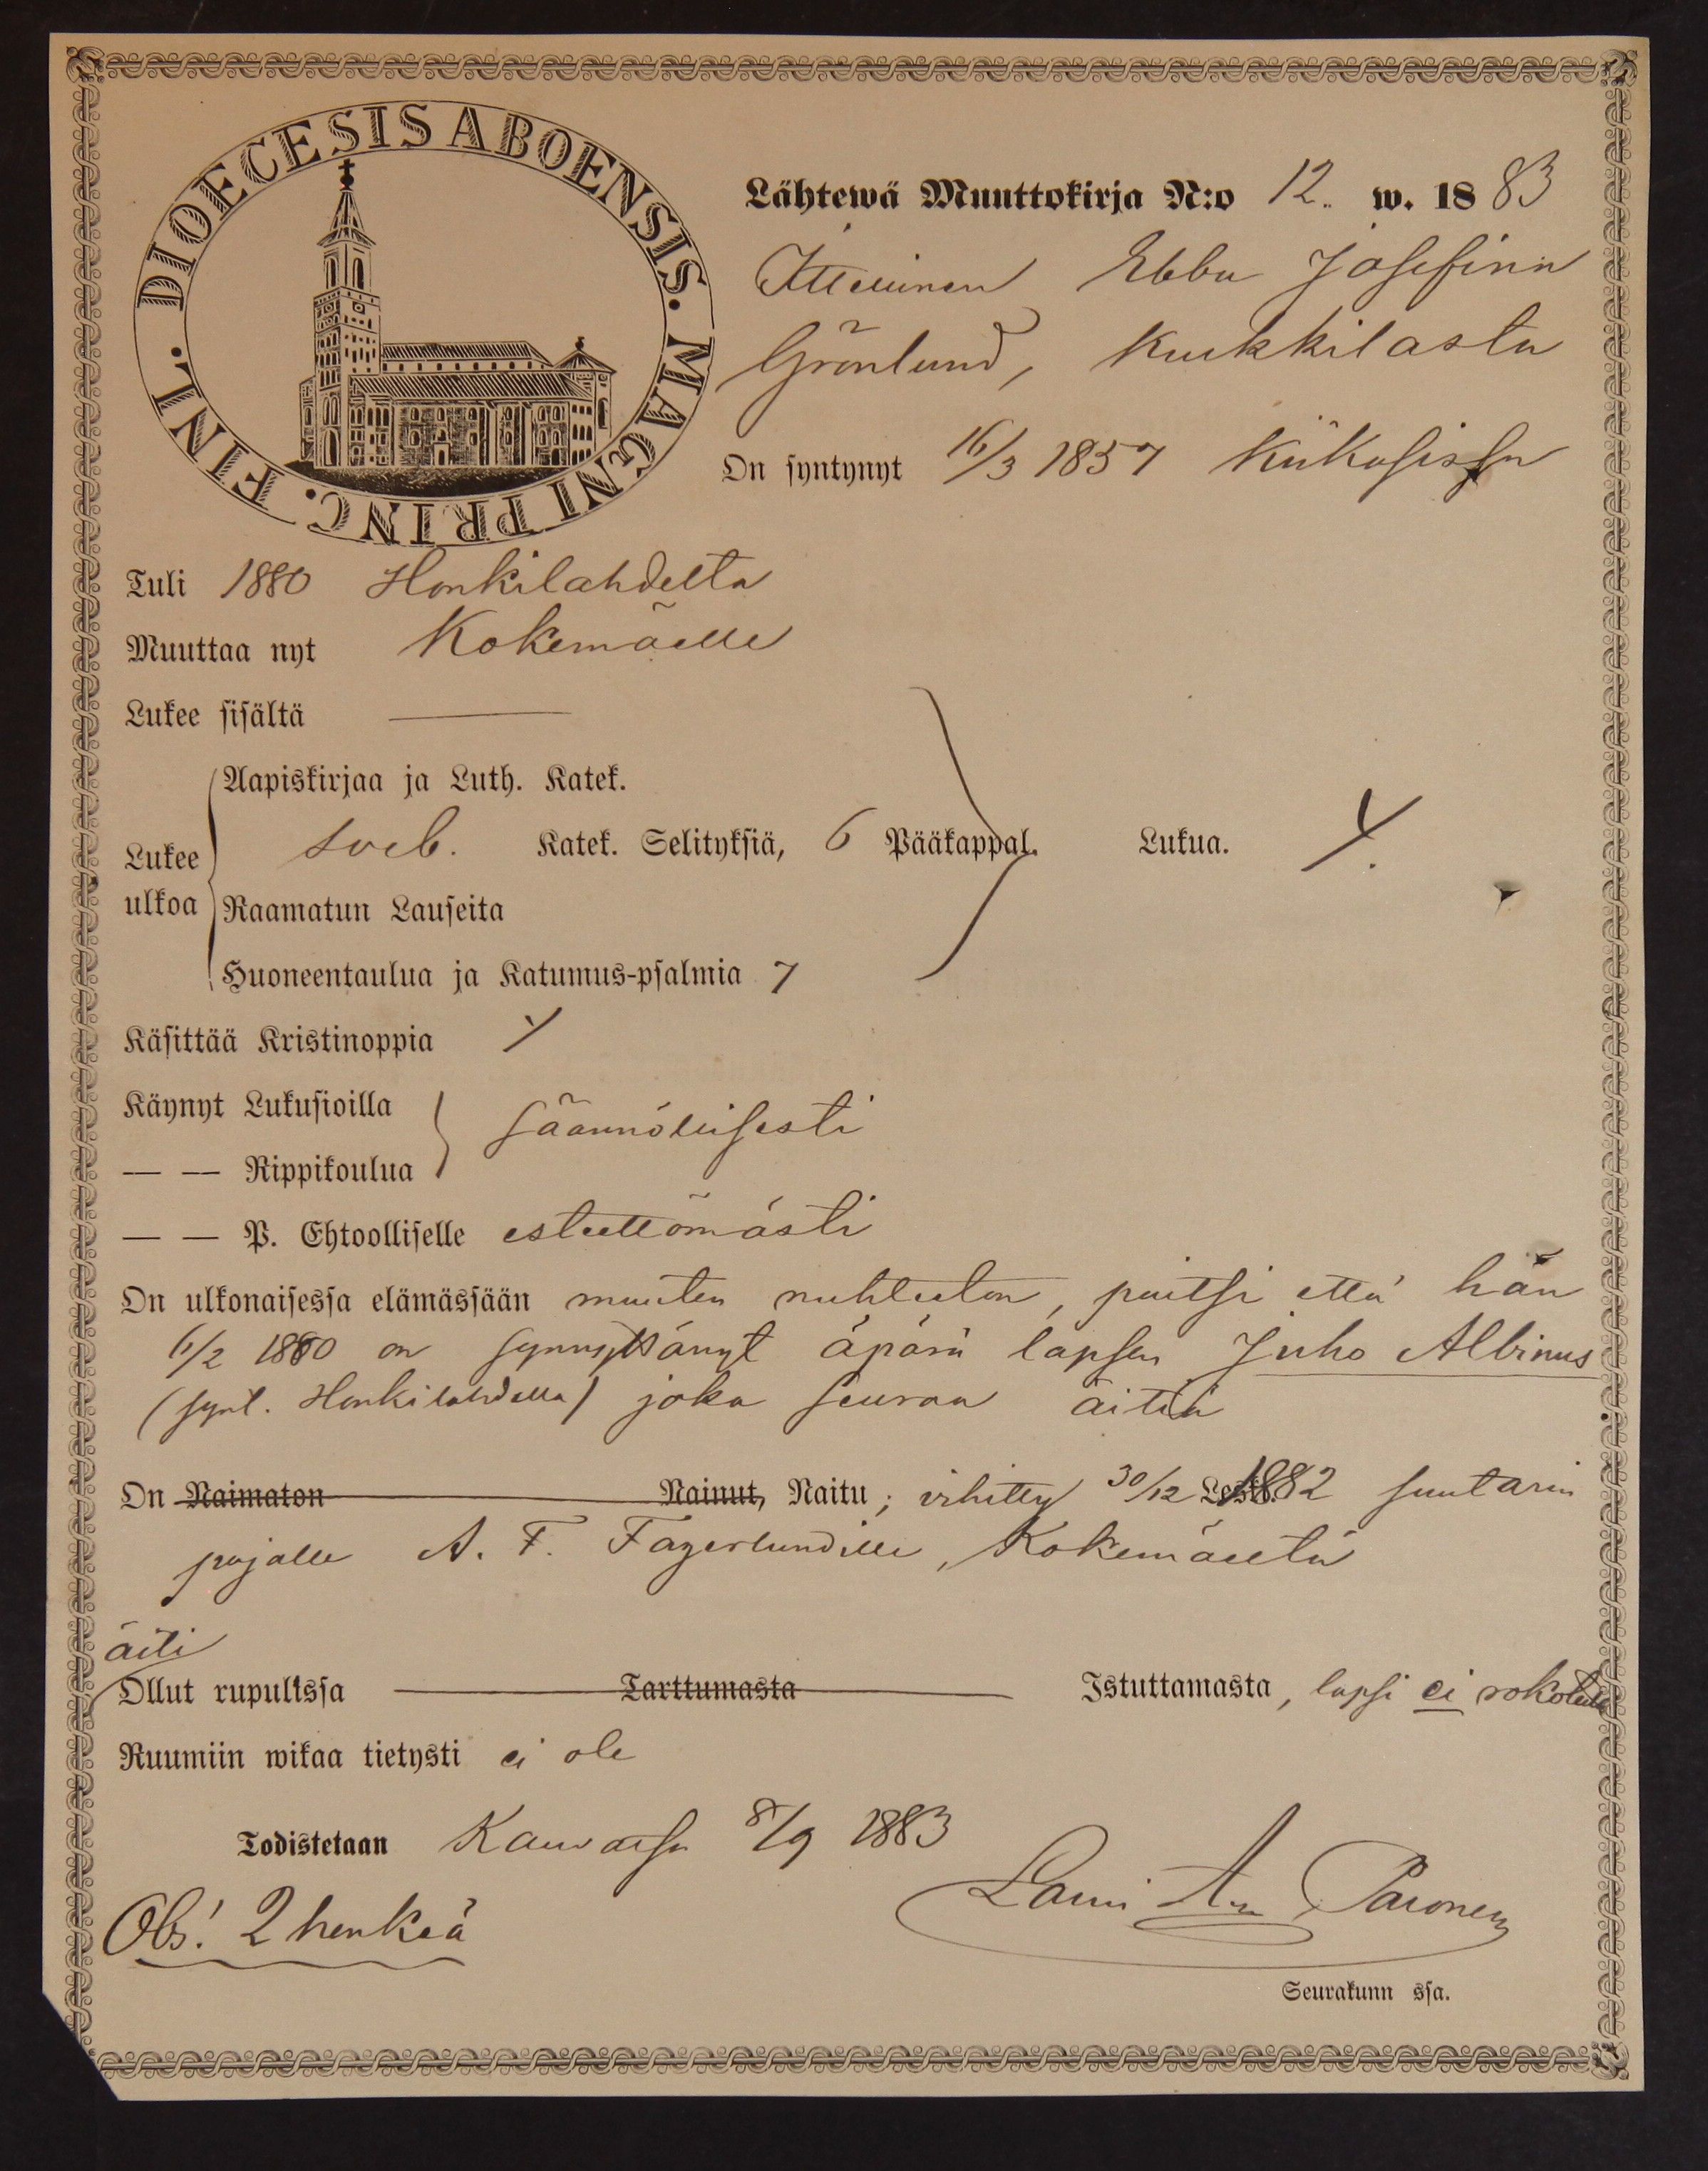 FINL. DIOECESIS ABOENSIS. MAGNI PRINC.
Lähtewä Muuttokirja N:o 12. w. 1883
Itsellinen Ebba Josefina
Grönlund, Kuikkilasta
On syntynyt 16/3 1857 Kiikasissa
Tuli 1880 Honkilahdelta
Muuttaa nyt Kokemäelle
Lukee sisältä
Aapiskirjaa ja Luth. Katek.
Lukee ulkoa
Sveb. Katek. Selityksiä, 6 Pääkappal. Lukua.
Raamatun Lauseita
Huoneentaulua ja Katumus-psalmia 7
Käsittää Kristinoppia
Käynyt Lukusioilla
säännöllisesti
— — Rippikoulua
— — P. Ehtoolliselle esteettömästi
On ulkonaisessa elämässään muuten nuhteeton, paitsi että hän
6/2 1880 on synnyttänyt äpärä lapsen Juho Albinus
(synt. Honkilahdella) joka seuraa äitiä
On Naimaton Nainut, Naitu; vihitty 30/12 Leski. 1882 suutarin
pojalle A. F. Fagerlundille, Kokemäeltä
äiti
Ollut rupulissa Tarttumasta Istuttamasta, lapsi ei rokotettu
Ruumiin wikaa tietysti ei ole
Todistetaan Kauvatsa 8/9 1883
Obs! 2 henkeä
Seurakunn ssa.